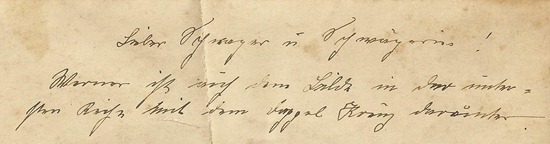 Lieber Schwager u Schwägerin!
Werner ist auf dem Bilde in der unter=
sten Reihe mit dem doppel Kreuz darunter